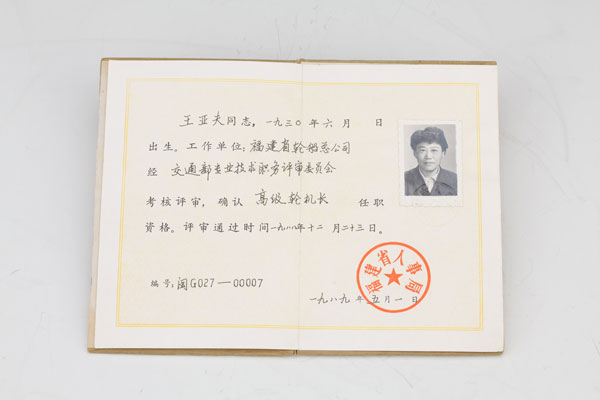 王亚夫同志，一九三〇年六月 日
出生。工作单位：福建省轮船总公司
经 交通部专业技术职务评审委员会
考核评审，确认 高级轮机长 任职
资格。评审通过时间一九八八年十二月二十三日。
编号：闽G027—00007
福建省人事局
一九八九年五月一日